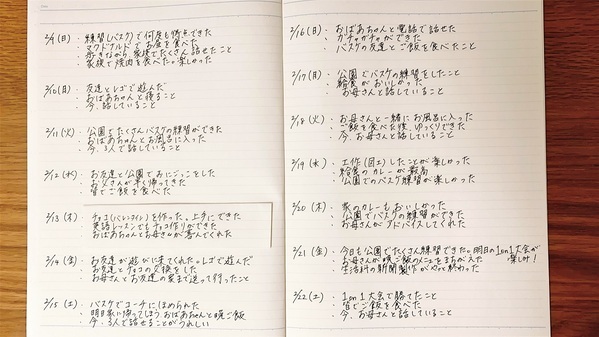 2/9(日)・練習(バスケ)で何度も得点できた
・マクドナルドでお昼を食べた
・歩きながら家族でたくさん話せたこと
・家族で焼肉を食べた。楽しかった
2/10(日)・友達とレゴで遊んだ
・おばあちゃんと寝ること
・今、話していること
2/11(火)・公園でたくさんバスケの練習ができた
・おばあちゃんとお風呂に入った
・今、3人で話していること
2/12(水)・お友達と公園でおにごっこをした
・お父さんが早く帰ってきた
・皆でご飯を食べた
2/13(木)・チョコ(バレンタイン)を作った。上手にできた
・英語レッスンでもチョコ作りができた
・おばあちゃんとお母さんが喜んでくれた
2/14(金)・お友達が遊びに来てくれた。レゴで遊んだ
・お友達とチョコの交換をした
・お母さんとお友達の家まで送って行ったこと
2/15(土)・バスケでコーチにほめられた
・明日家に帰ってしまうおばあちゃんと晩ご飯
・今、3人で話せることがうれしい
2/16(日)・おばあちゃんと電話で話せた
・ガチャガチャができた
・バスケの友達とご飯を食べたこと
2/17(日)・公園でバスケの練習をしたこと
・給食がおいしかった
・お母さんと話していること
2/18(火)・お母さんと一緒にお風呂に入った
・ご飯を食べた後、ゆっくりできた
・今、お母さんと話していること
2/19(水)・工作(図工)したことが楽しかった
・給食のカレーが最高
・公園でのバスケ練習が楽しかった
2/20(木)・家のカレーもおいしかった
・公園でバスケの練習ができた
・お母さんがアドバイスしてくれた
2/21(金)・今日も公園でたくさん練習できた。明日の1on1大会が楽しみ!
・お母さんが晩ご飯のメニューをまちがえた
・生活科の新聞製作がやっと終わった
2/22(土)・1on1大会で勝てたこと
・皆でご飯を食べた
・今、お母さんと話していること